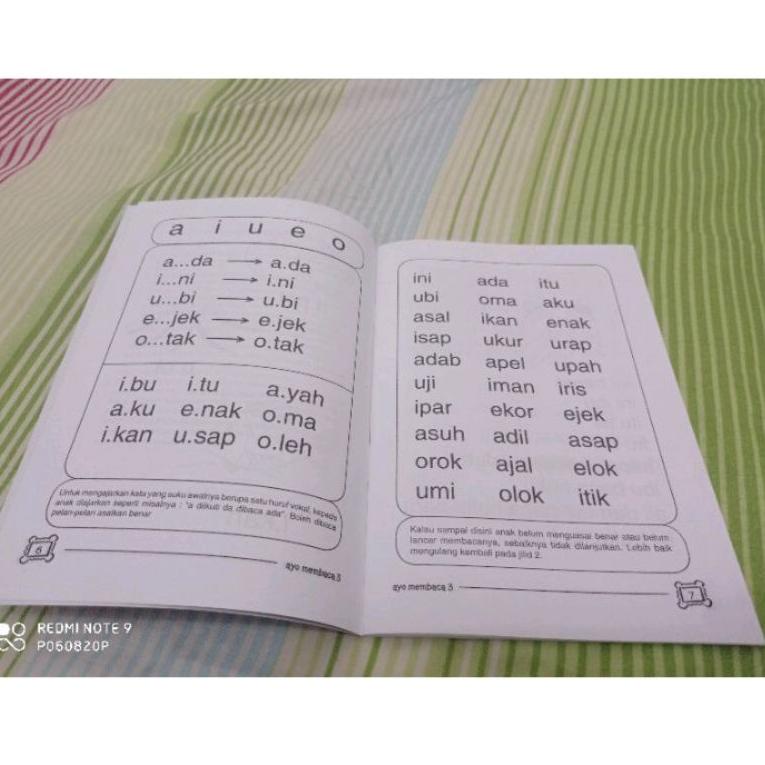 a i u e o
a...da → a.da
i...ni → i.ni
u...bi → u.bi
e...jek → e.jek
o...tak → o.tak
i.bu i.tu a.yah
a.ku e.nak o.ma
i.kan u.sap o.leh
Untuk mengajarkan kata yang suku awalnya berupa satu huruf vokal, kepada
anak diajarkan seperti misalnya : "a diikuti da dibaca ada". Boleh dibaca
pelan-pelan asalkan benar
6
ayo membaca 3
ini ada itu
ubi oma aku
asal ikan enak
isap ukur urap
adab apel upah
uji iman iris
ipar ekor ejek
asuh adil asap
orok ajal elok
umi olok itik
Kalau sampai disini anak belum menguasai benar atau belum
lancar membacanya, sebaiknya tidak dilanjutkan. Lebih baik
mengulang kembali pada jilid 2.
ayo membaca 3
7
REDMI NOTE 9
P060820P